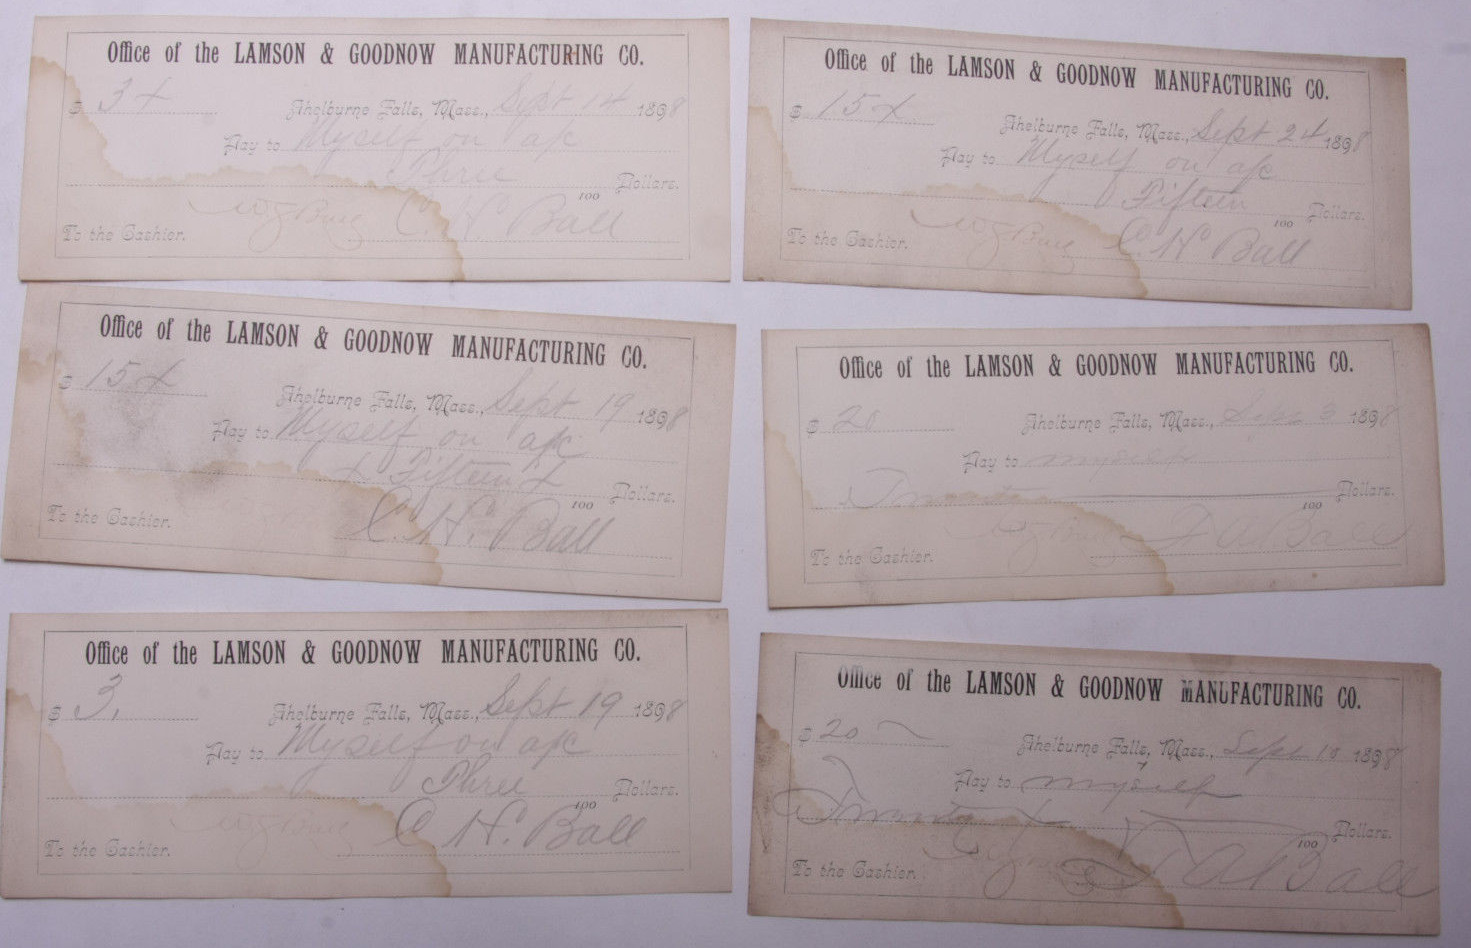 Office of the LAMSON & GOODNOW MANUFACTURING CO.
$ 3 x Shelburne Falls, Mass., Sept 14 1898
Pay to Myself on a/c
Three 100 Dollars.
To the Cashier. C. H. Ball
Office of the LAMSON & GOODNOW MANUFACTURING CO.
$ 15 x Shelburne Falls, Mass., Sept 24 1898
Pay to Myself on a/c
Fifteen 100 Dollars.
To the Cashier. C. H. Ball
Office of the LAMSON & GOODNOW MANUFACTURING CO.
$ 15 x Shelburne Falls, Mass., Sept 19 1898
Pay to Myself on a/c
x Fifteen x 100 Dollars.
To the Cashier. C. H. Ball
Office of the LAMSON & GOODNOW MANUFACTURING CO.
$ 20 Shelburne Falls, Mass., Sept 3 1898
Pay to myself
Twenty 100 Dollars.
To the Cashier. F A Ball
Office of the LAMSON & GOODNOW MANUFACTURING CO.
$ 3, Shelburne Falls, Mass., Sept 19 1898
Pay to Myself on a/c
Three 100 Dollars.
To the Cashier. C. H. Ball
Office of the LAMSON & GOODNOW MANUFACTURING CO.
$ 20 Shelburne Falls, Mass., Sept 10 1898
Pay to myself
Twenty 100 Dollars.
To the Cashier. F A Ball